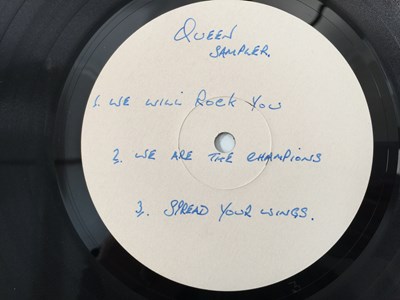 QUEEN
SAMPLER.
1. WE WILL ROCK YOU
2. WE ARE THE CHAMPIONS
3. SPREAD YOUR WINGS.